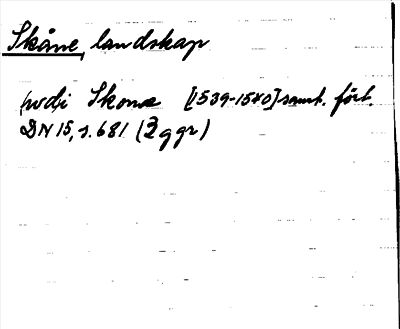 Skåne, landskap
(wdi Skone [1539-1540] samt. fört.
DN 15, s. 681 (2 ggr)